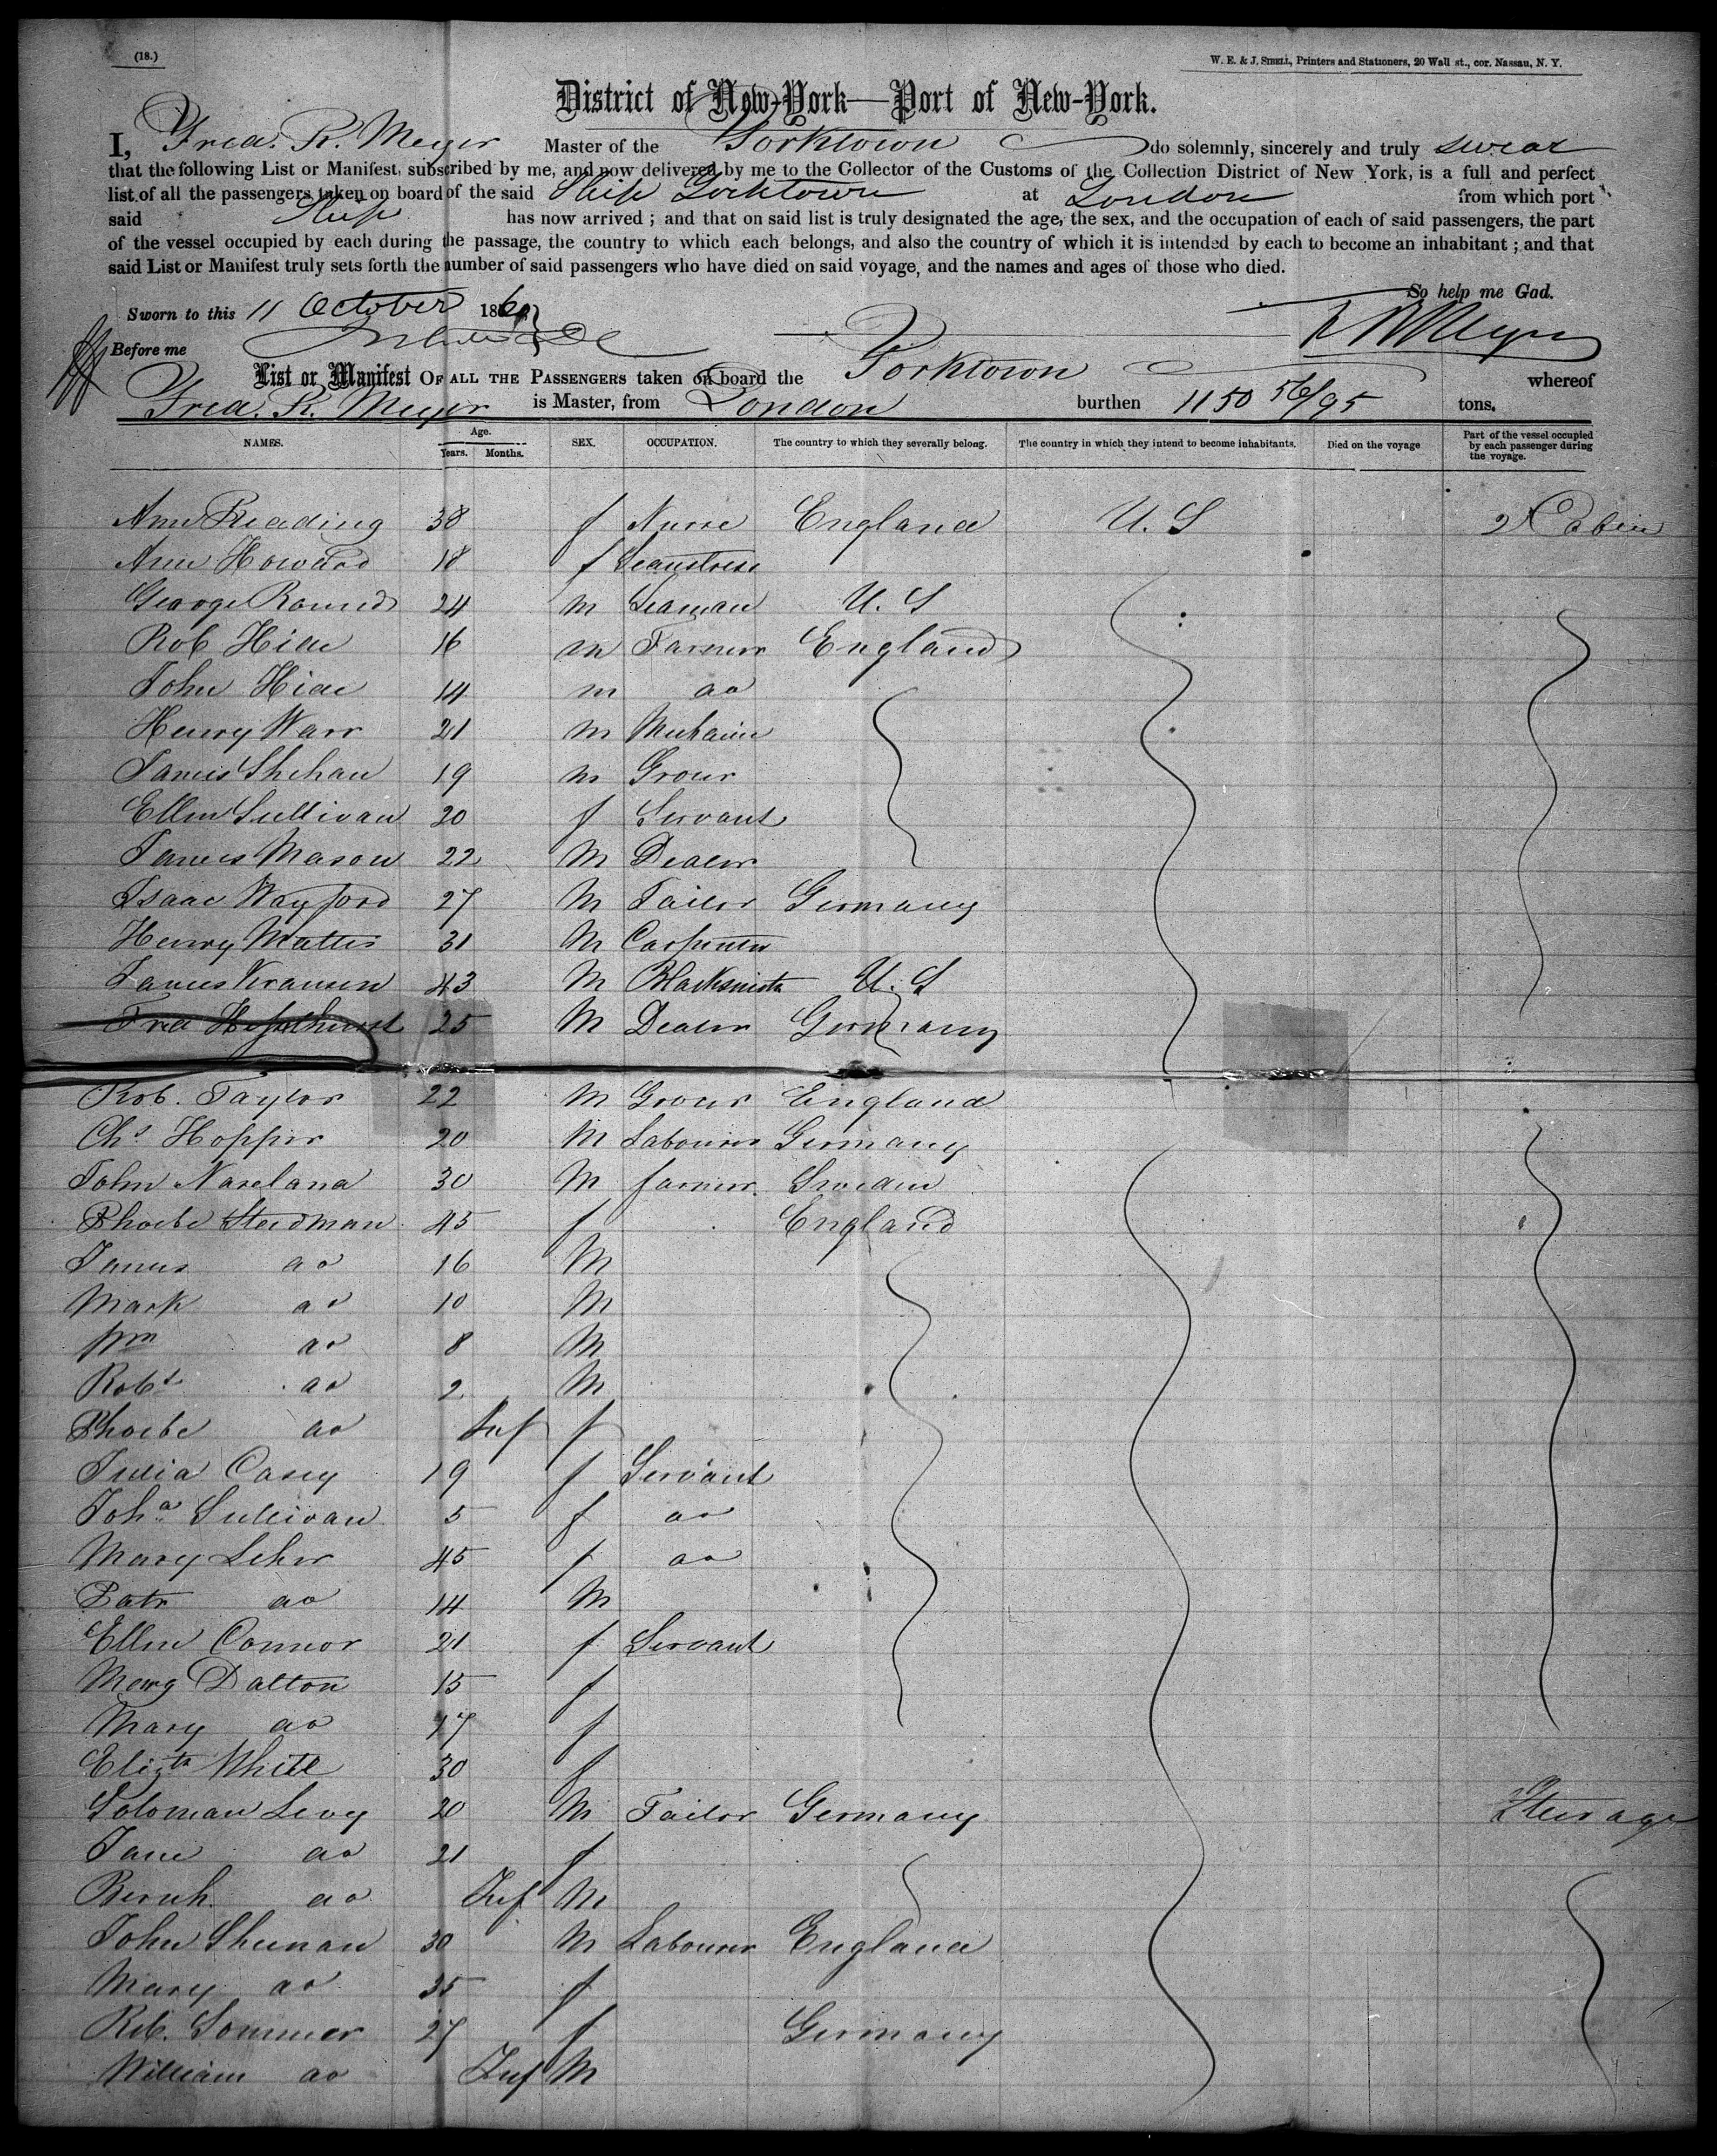 (18.)
W. E. & J. SIBELL, Printers and Stationers, 20 Wall st., cor. Nassau, N. Y.
District of New-York—Port of New-York.
I, Fred. R. Meyer Master of the Yorktown do solemnly, sincerely and truly swear
that the following List or Manifest, subscribed by me, and now delivered by me to the Collector of the Customs of the Collection District of New York, is a full and perfect
list of all the passengers taken on board of the said Ship Yorktown at London from which port
said Ship has now arrived ; and that on said list is truly designated the age, the sex, and the occupation of each of said passengers, the part
of the vessel occupied by each during the passage, the country to which each belongs, and also the country of which it is intended by each to become an inhabitant ; and that
said List or Manifest truly sets forth the number of said passengers who have died on said voyage, and the names and ages of those who died.
So help me God.
Sworn to this 11 October 186
F R Meyer
Before me
List or Manifest OF ALL THE PASSENGERS taken on board the Yorktown whereof
Fred. R. Meyer is Master, from London burthen 1150 56/95 tons.
NAMES. Age. Years. Months. SEX. OCCUPATION. The country to which they severally belong. The country in which they intend to become inhabitants. Died on the voyage Part of the vessel occupied by each passenger during the voyage.
Ann Reading 38 f Nurse England U. S 2 Cabin
Ann Howard 18 f Seamstress
George Round 24 m Seaman U. S
Rob Hide 16 m Farmer England
John Hide 14 m do
Henry Warr 21 m Mechanic
James Shehan 19 m Grocer
Ellen Sullivan 20 f Servant
James Mason 22 M Dealer
Isaac Wayford 27 M Tailor Germany
Henry Mattes 31 M Carpenter
James 43 M Blacksmith U. S
Fred 25 M Dealer Germany
Rob. Taylor 22 M Grocer England
Chs Hopper 20 M Labourer Germany
John 30 M farmer Sweden
Phoebe Steadman 45 f England
James do 16 M
Mark do 10 M
Wm do 8 M
Robt do 2 M
Phoebe do Inf f
Julia Casey 19 f Servant
Joha Sullivan 5 f do
Mary Leher 45 f do
Patr do 14 M
Ellen Connor 21 f Servant
Marg Dalton 15 f
Mary do 17 f
Elizth White 30 f
Soloman Levy 20 M Tailor Germany Steerage
Jane do 21 f
Bernh. do Inf M
John Sheenan 30 M Labourer England
Mary do 35 f
Reb. Sommer 27 f Germany
William do Inf M